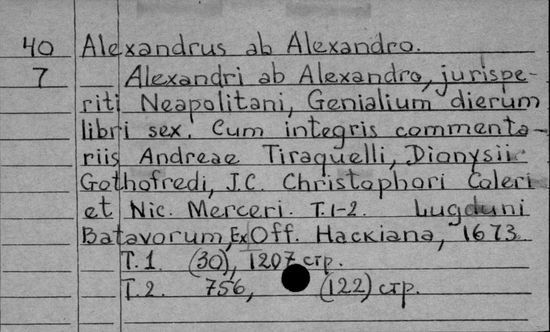 40 Alexandrus ab Alexandro.
7 Alexandri ab Alexandro, jurispe-
riti Neapolitani, Genialium dierum
libri sex. Cum integris commenta-
riis Andreae Tiraquelli, Dionysii
Gothofredi, J.C. Christophori Coleri
et Nic. Merceri. T.1-2. Lugduni
Batavorum, Ex Off. Hackiana, 1673.
T.1. (30), 1207 стр.
T.2. 756, (122) стр.